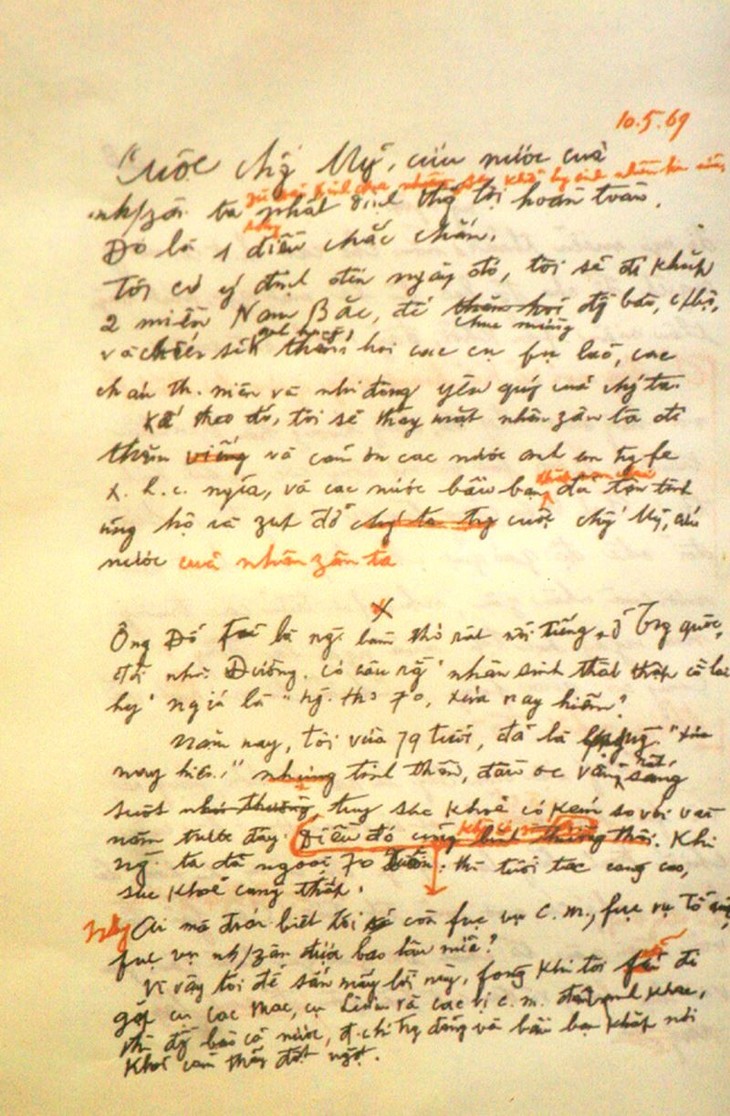 10.5.69
Cuộc chg' Mỹ, cứu nước của
nh/zân ta
zù phải kinh qua nhiều khổ hy sinh nhiều hơn nữa
phất định thg' lợi hoàn toàn.
Đó là 1 điều chắc chắn.
Tôi có ý định đến ngày đó, tôi sẽ đi khắp
2 miền Nam Bắc, để thăm hỏi đg bào, c/bộ,
chúc mừng
và chiến sĩ anh hùng, thăm hỏi các cụ fụ lão, các
cháu th. niên và nhi đồng yêu quý của chg' ta.
Kế theo đó, tôi sẽ thay mặt nhân zân ta đi
thăm viếng và cám ơn các nước anh em tg fe
x. h. c. ngĩa, và các nước bầu bạn đã tận tình
ủng hộ và zúp đỡ chg' ta tg cuộc chg' Mỹ, cứu
nước của nhân zân ta
X
Ông Đỗ Fủ là ng. làm thơ rất nổi tiếng, ở Trg quốc,
đời nhà Đường. Có câu rg "nhân sinh thất thập cổ lai
hy" ngĩa là "ng. thọ 70, xưa nay hiếm".
Năm nay, tôi vừa 79 tuổi, đã là lớp ng. "xưa
nay hiếm" nhưng tinh thần, đầu óc vẫn rất sáng
suốt như thường, tuy sức khoẻ có kém so với vài
năm trước đây. Điều đó cũng bình thường thôi. Khi
ng. ta đã ngoài 70 xuân, thì tuổi tác càng cao,
sức khoẻ càng thấp.
Nhg Ai mà đoán biết tôi sẽ còn fục vụ c.m., fục vụ Tổ quốc,
fục vụ nh/zân được bao lâu nữa?
Vì vậy tôi để sẵn mấy lời này, fòng khi tôi sẽ đi
gặp cụ Các Mác, cụ Lênin và các vị c.m. đàn anh khác,
thì đg bào cả nước, đ.chí tg đảng và bầu bạn khắp nơi
khỏi cảm thấy đột ngột.